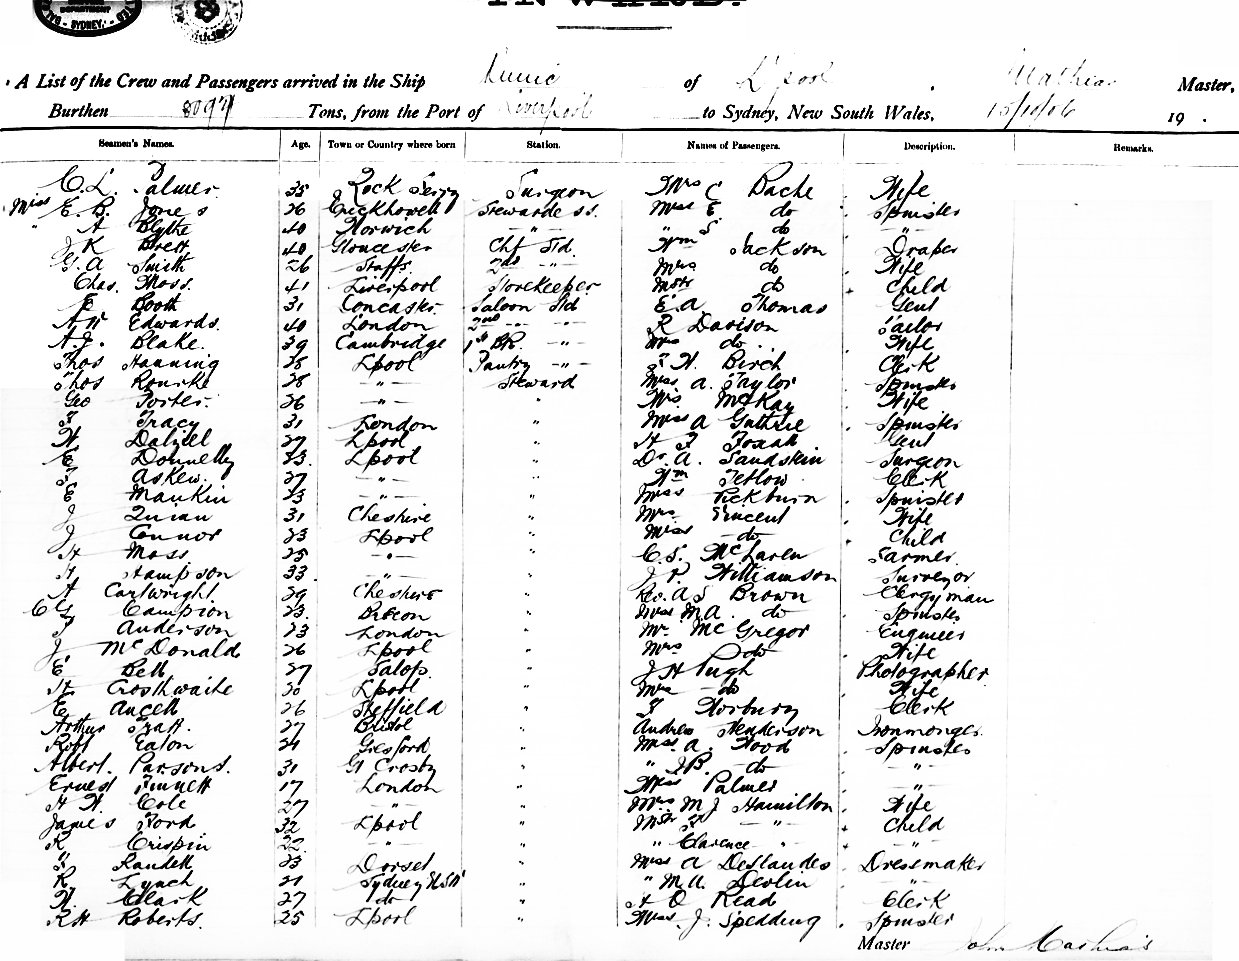 INWARD.
SYDNEY.
A List of the Crew and Passengers arrived in the Ship Runic of L'pool Mathias Master,
Burthen 8097 Tons, from the Port of Liverpool to Sydney, New South Wales, 15/10/06 19 .
Seamen's Names. Age. Town or Country where born Station. Names of Passengers. Description. Remarks.
C. L. Palmer 35 Rock Ferry Surgeon Mrs C Bache Wife
Miss E. B. Jones 26 Crickhowell Stewardess. Miss E. do Spinster
" A Blythe 40 Norwich -"- " S do -"-
J K Brett 40 Gloucester Chf Std. Wm Jackson Draper
G. A Smith 26 Staffs. 2nd -"- Mrs do Wife
Chas. Moss. 41 Liverpool Storekeeper Mstr do Child
Booth 31 Saloon Std E. A. Thomas Gent
A W Edwards. 40 London 2nd -"- -"- R Davison Tailor
A. J. Blake. 39 Cambridge 1st BR. -"- Mrs do. Wife
Thos Hanning 38 Lpool Pantry -"- F. W. Birch Clerk
Thos Rourke 28 -"- Steward Miss A. Taylor Spinster
Geo Porter. 26 -"- " Mrs McKay Wife
F Tracy 31 London " Miss A Guthrie Spinster
W Dalziel 27 Lpool " H F Gent
E Donnelly 33. Lpool " Dr. A. Sandskin Surgeon
T Askew. 27 -"- " Wm Tetlow. Clerk
E Mankin 23 -"- " Miss Pickburn Spinster
J Quinn 31 Cheshire " Mrs Vincent Wife
J Connor 23 Lpool " Miss -do- Child
H Moss 25 -"- " C. S. McLaren Farmer.
H Hampson 33. -"- " J. P. Williamson Surveyor
A Cartwright. 29 Cheshire " Rev. A S Brown Clergyman
C G Campion 23. Brecon " Miss M A. do Spinster
J Anderson 23 London " Mr. McGregor Engineer
J. McDonald 26 Lpool " Mrs do Wife
E Bell 27 Salop. " J H Pugh Photographer
H Crosthwaite 30 Lpool " Mrs -do Wife
E Ancell 26 Sheffield " F Norbury Clerk
Arthur Pratt. 27 Bristol " Andrew Henderson Ironmonger.
Robt Eaton 24 Gresford " Miss A. Hood Spinster
Albert. Parsons. 31 Gt Crosby " " J.B. do -"-
Ernest Finnett 17 London " Miss Palmer -"-
H W Cole 27 -"- " Mrs M J Hamilton Wife
James Ford 32 Lpool " Mstr F -"- Child
R Crispin 22. -"- " " Clarence " -"-
F Randell 23 Dorset " Miss A Deslandes Dressmaker
R Lynch 21 Sydney NSW " " M A. Devlin -"-
W Clark 27 do " H O Read Clerk
R H Roberts. 25 Lpool " Miss. J. Spedding Spinster
Master John Mathias